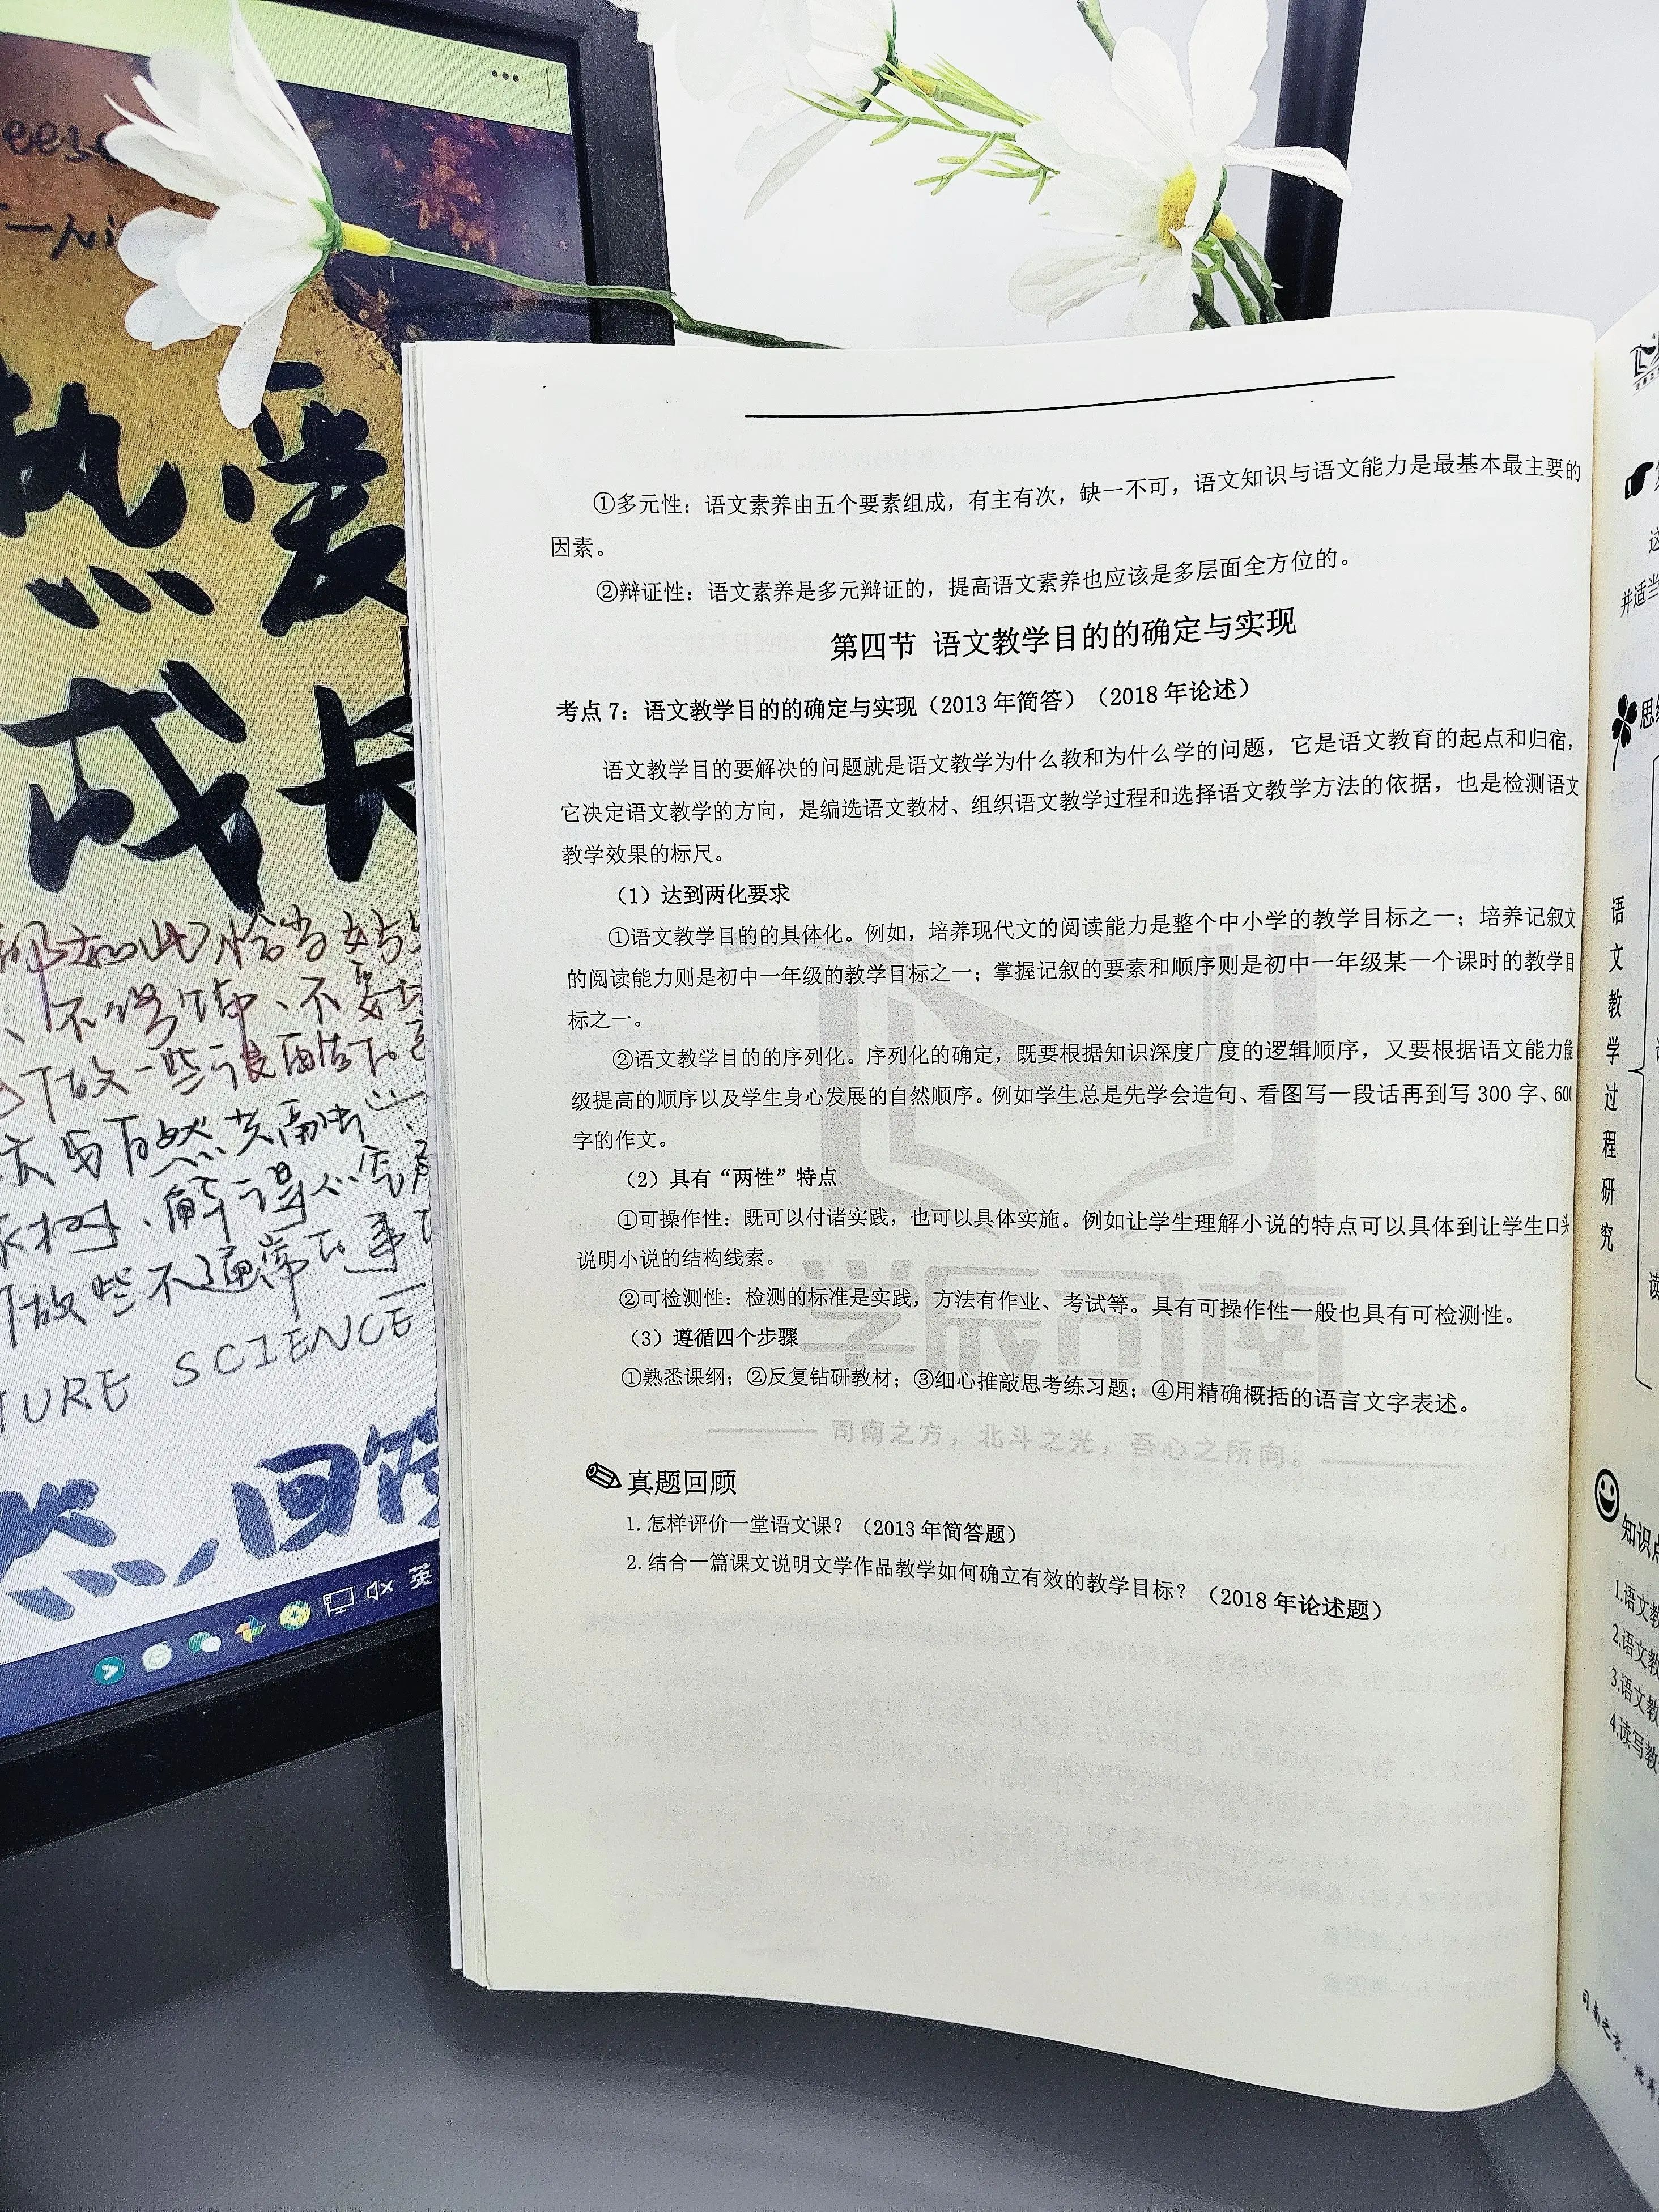 热爱
成长
不得饰、不要
TURE SCIENCE
回馈
英
①多元性：语文素养由五个要素组成，有主有次，缺一不可，语文知识与语文能力是最基本最主要的
因素。
②辩证性：语文素养是多元辩证的，提高语文素养也应该是多层面全方位的。
第四节 语文教学目的的确定与实现
考点 7：语文教学目的的确定与实现（2013 年简答）（2018 年论述）
语文教学目的要解决的问题就是语文教学为什么教和为什么学的问题，它是语文教育的起点和归宿，
它决定语文教学的方向，是编选语文教材、组织语文教学过程和选择语文教学方法的依据，也是检测语文
教学效果的标尺。
（1）达到两化要求
①语文教学目的的具体化。例如，培养现代文的阅读能力是整个中小学的教学目标之一；培养记叙文
的阅读能力则是初中一年级的教学目标之一；掌握记叙的要素和顺序则是初中一年级某一个课时的教学目
标之一。
②语文教学目的的序列化。序列化的确定，既要根据知识深度广度的逻辑顺序，又要根据语文能力能
级提高的顺序以及学生身心发展的自然顺序。例如学生总是先学会造句、看图写一段话再到写 300 字、600
字的作文。
（2）具有“两性”特点
①可操作性：既可以付诸实践，也可以具体实施。例如让学生理解小说的特点可以具体到让学生口头
说明小说的结构线索。
②可检测性：检测的标准是实践，方法有作业、考试等。具有可操作性一般也具有可检测性。
（3）遵循四个步骤
①熟悉课纲；②反复钻研教材；③细心推敲思考练习题；④用精确概括的语言文字表述。
学辰司南
司南之方，北斗之光，吾心之所向。
真题回顾
1.怎样评价一堂语文课？（2013 年简答题）
2.结合一篇课文说明文学作品教学如何确立有效的教学目标？（2018 年论述题）
并适当
语文教学过程研究
读
知识点
1.语文教
2.语文教
3.语文教
4.读写教
司南之方，北斗